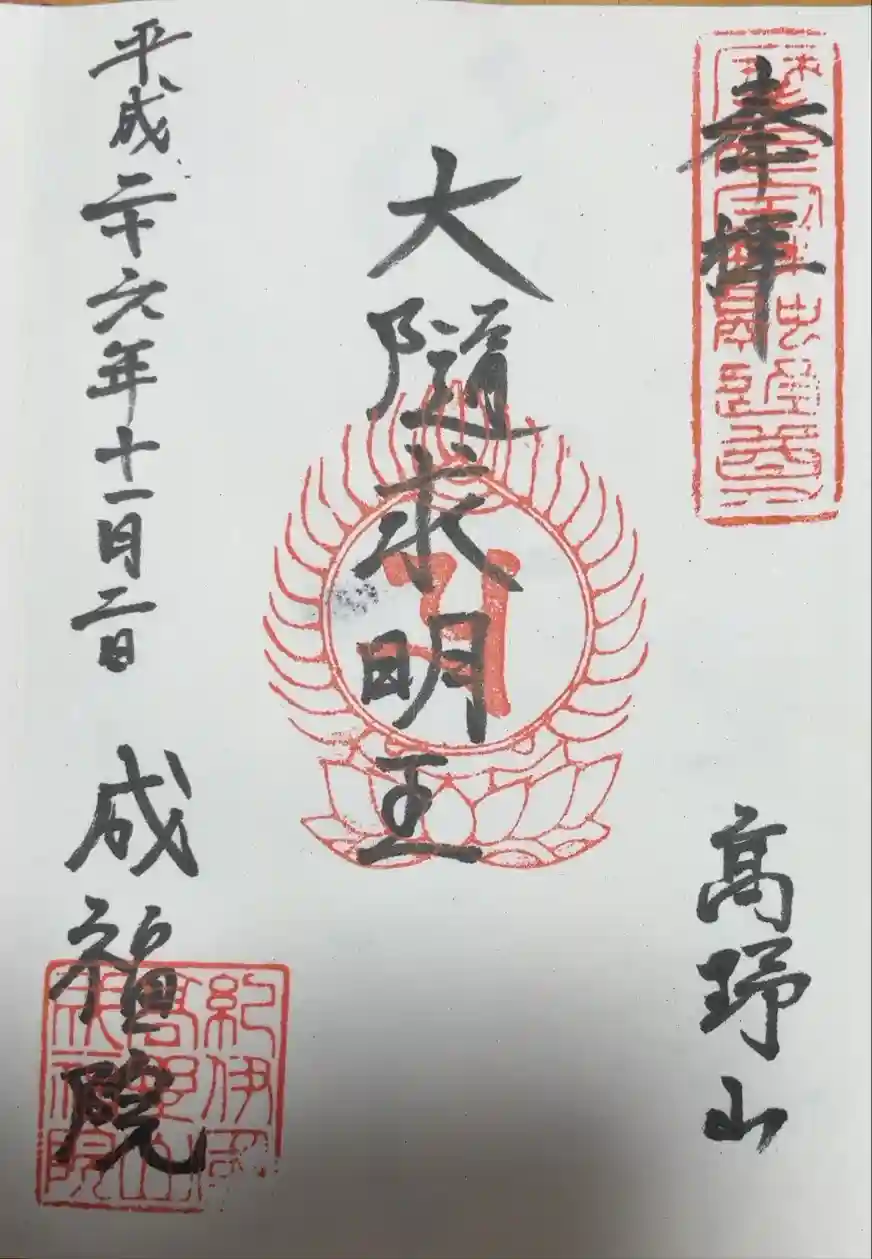 奉拝
高野山
大隨求明王
平成二十六年十一月二日
成福院
紀伊国
高野山
成福院